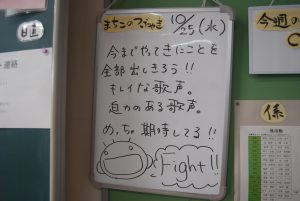 まちこのつぶやき
10/25(水)
今までやってきたことを
全部出しきろう!!
キレイな歌声。
迫力のある歌声。
めっちゃ期待してる!!
Fight!!
今週の
連絡
係